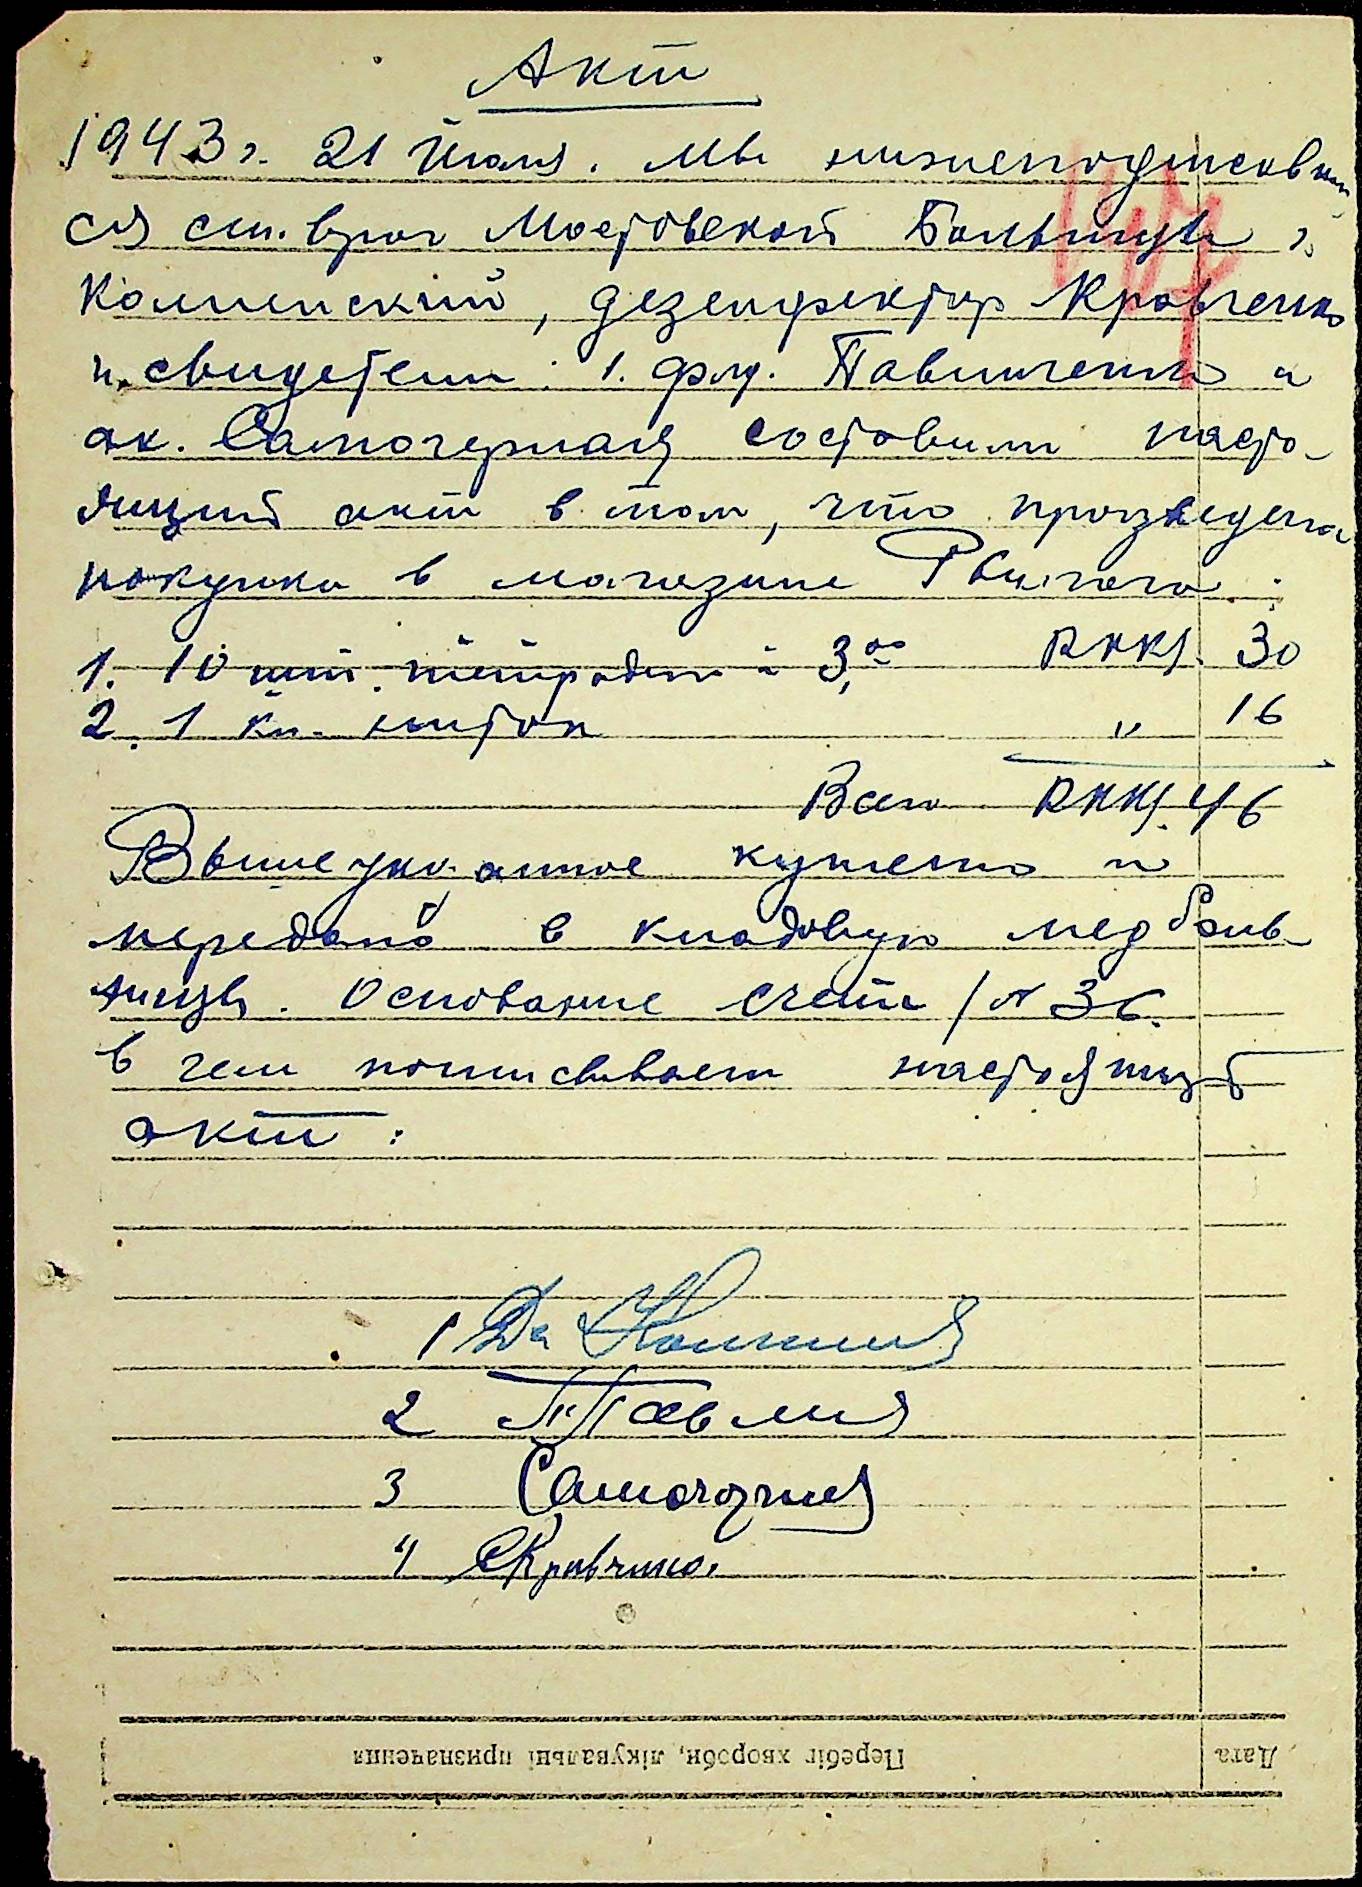 Акт
1943 г. 21 Июля. Мы нижеподписавши
ся ст. врач Мостовской Больницы г.
Колинский, дезенфектор Кравченко
и свидетели: 1. флд. Павличенко и
ак. Самочерная составили насто-
ящий акт в том, что произведена
покупка в магазине :
1. 10 шт. тетрадей à 3,00 RKKS. 30
2. 1 кл. ниток " 16
Всего RKKS. 46
Вышеуказанное куплено и
передано в кладовую медболь-
ницы. Основание счета /№ 36.
в чем пописываем настоящий
акт :
1
2
3 Самочерная
4 Кравченко.
Перебіг хвороби, лікувальні призначення
Дата